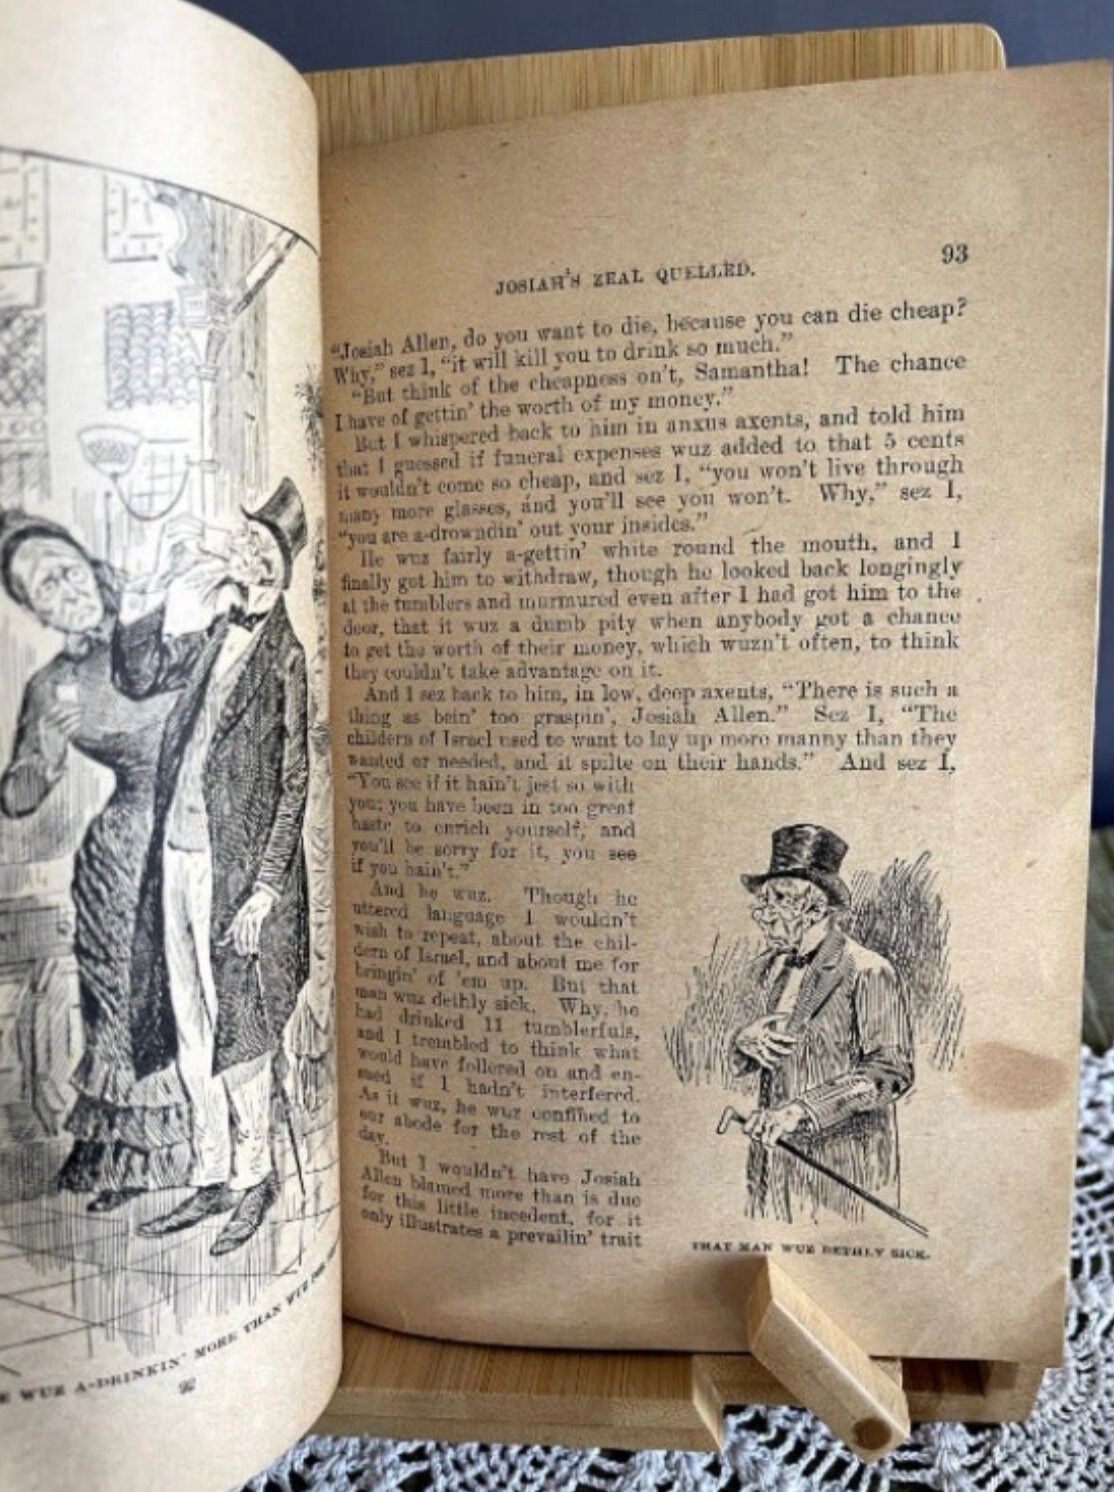 E WUZ A-DRINKIN' MORE THAN WUZ
92
93
JOSIAH'S ZEAL QUELLED.
"Josiah Allen, do you want to die, because you can die cheap?
Why," sez I, "it will kill you to drink so much."
"But think of the cheapness on't, Samantha! The chance
I have of gettin' the worth of my money."
But I whispered back to him in anxus axents, and told him
that I guessed if funeral expenses wuz added to that 5 cents
it wouldn't come so cheap, and sez I, "you won't live through
many more glasses, and you'll see you won't. Why," sez I,
"you are a-drowndin' out your insides."
He wuz fairly a-gettin' white round the mouth, and I
finally got him to withdraw, though he looked back longingly
at the tumblers and murmured even after I had got him to the
door, that it wuz a dumb pity when anybody got a chance
to get the worth of their money, which wuzn't often, to think
they couldn't take advantage on it.
And I sez back to him, in low, deep axents, "There is such a
thing as bein' too graspin', Josiah Allen." Sez I, "The
childern of Israel used to want to lay up more manny than they
wanted or needed, and it spilte on their hands." And sez I,
"You see if it hain't jest so with
you; you have been in too great
haste to enrich yourself, and
you'll be sorry for it, you see
if you hain't."
And he wuz. Though he
uttered language I wouldn't
wish to repeat, about the chil-
dern of Israel, and about me for
bringin' of 'em up. But that
man wuz dethly sick. Why, he
had drinked 11 tumblerfuls,
and I trembled to think what
would have follered on and en-
sued if I hadn't interfered.
As it wuz, he wuz confined to
our abode for the rest of the
day.
But I wouldn't have Josiah
Allen blamed more than is due
for this little incedent, for it
only illustrates a prevailin' trait
THAT MAN WUZ DETHLY SICK.